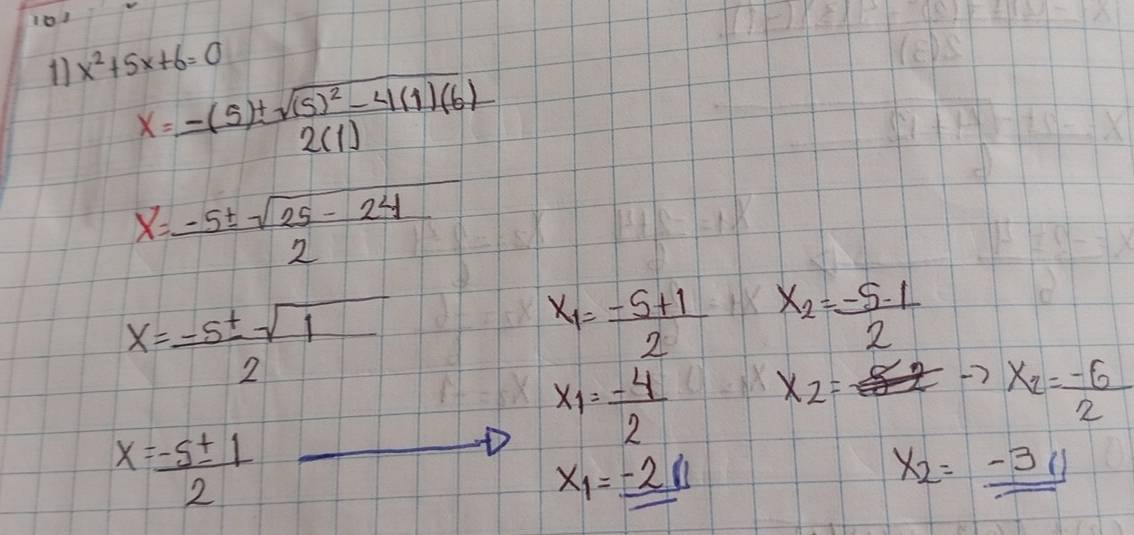 1) x²+5x+6=0
x = -(5) ± √(5)² - 4(1)(6) / 2(1)
x = -5 ± √25 - 24 / 2
x = -5 ± √1 / 2
x = -5 ± 1 / 2 →
x₁ = -5+1 / 2
x₁ = -4 / 2
x₁ = -2 //
x₂ = -5-1 / 2
x₂ = → x₂ = -6 / 2
x₂ = -3 //